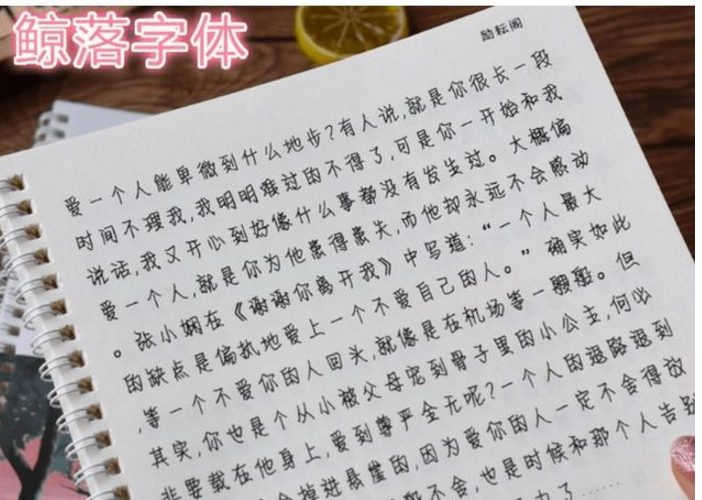 鲸落字体
励耘阁
爱一个人能卑微到什么地步?有人说,就是你很长一段
时间不理我,我明明难过的不得了,可是你一开始和我
说话,我又开心到好像什么事都没有发生过。大概偏
爱一个人,就是你为他患得患失,而他却永远不会感动
。张小娴在《谢谢你离开我》中写道:“一个人最大
的缺点是偏执地爱上一个不爱自己的人。”确实如此
,等一个不爱你的人回头,就像是在机场等一艘船。但
其实,你也是个从小被父母宠到骨子里的小公主,何必
非要栽在他身上,爱到尊严全无呢?一个人的退路退到
会掉进悬崖的,因为爱你的人一定不舍得放
不舍,也是时候和那个人告别
了......